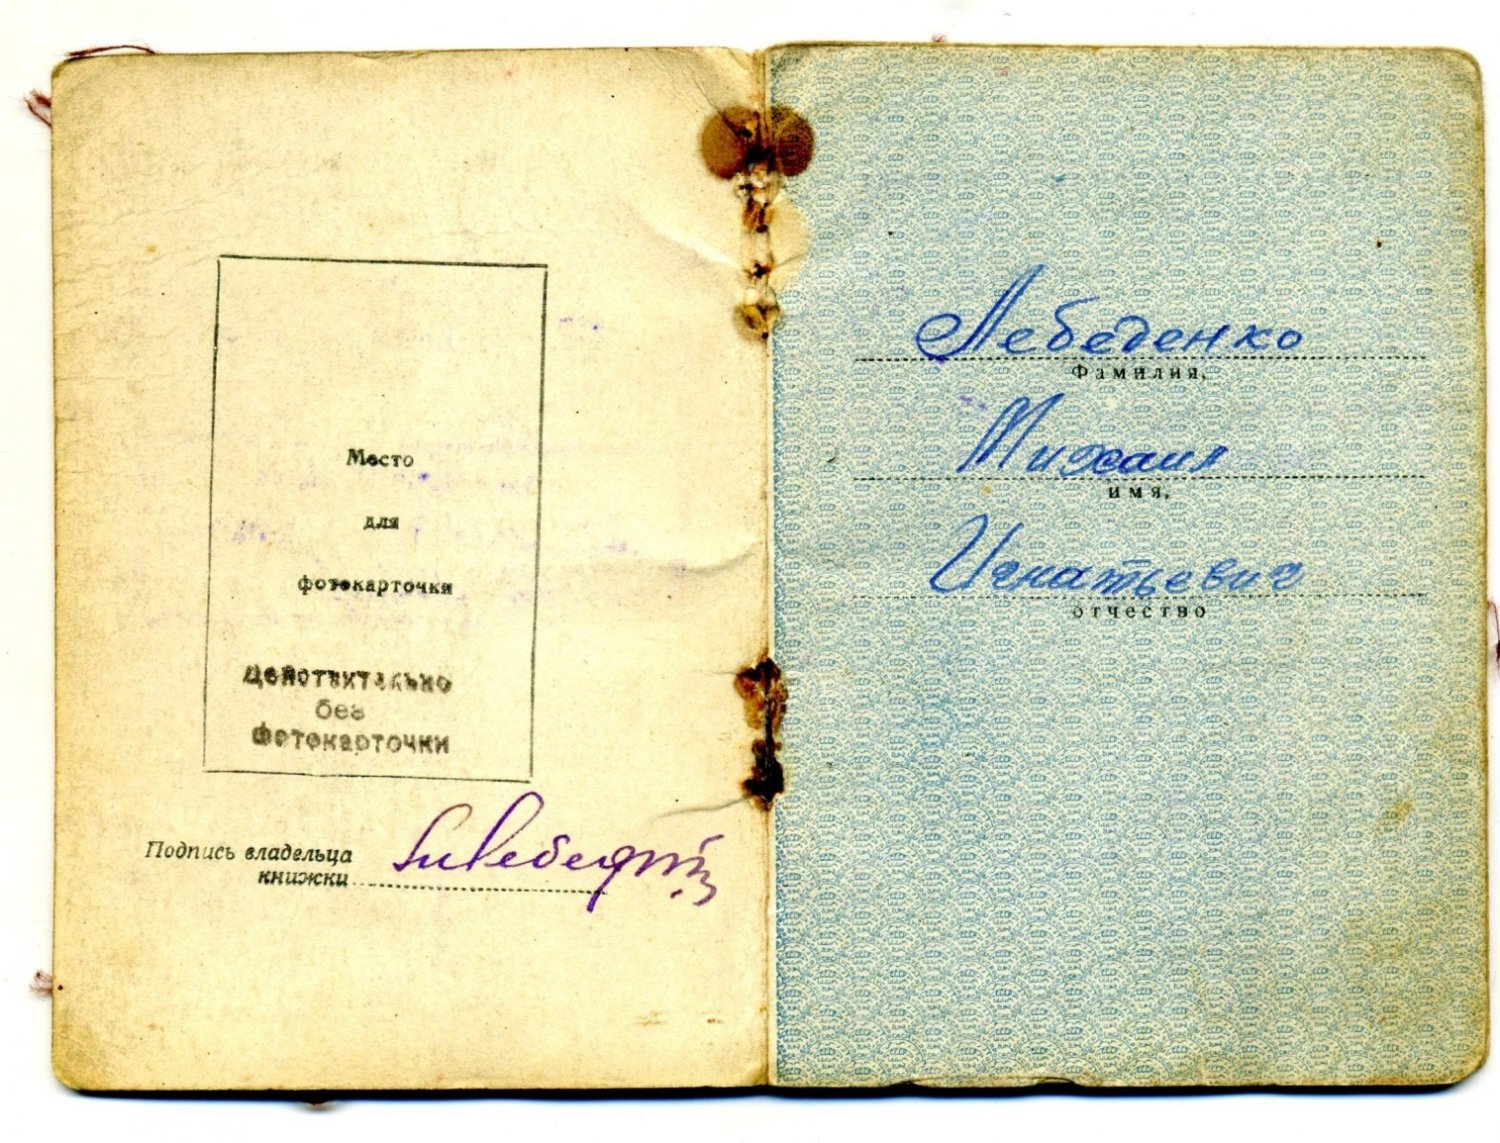 Место
для
фотокарточки
Действительно
без
фотокарточки
Подпись владельца
книжки
Лебеденко
Фамилия,
Михаил
имя,
Игнатьевич
отчество